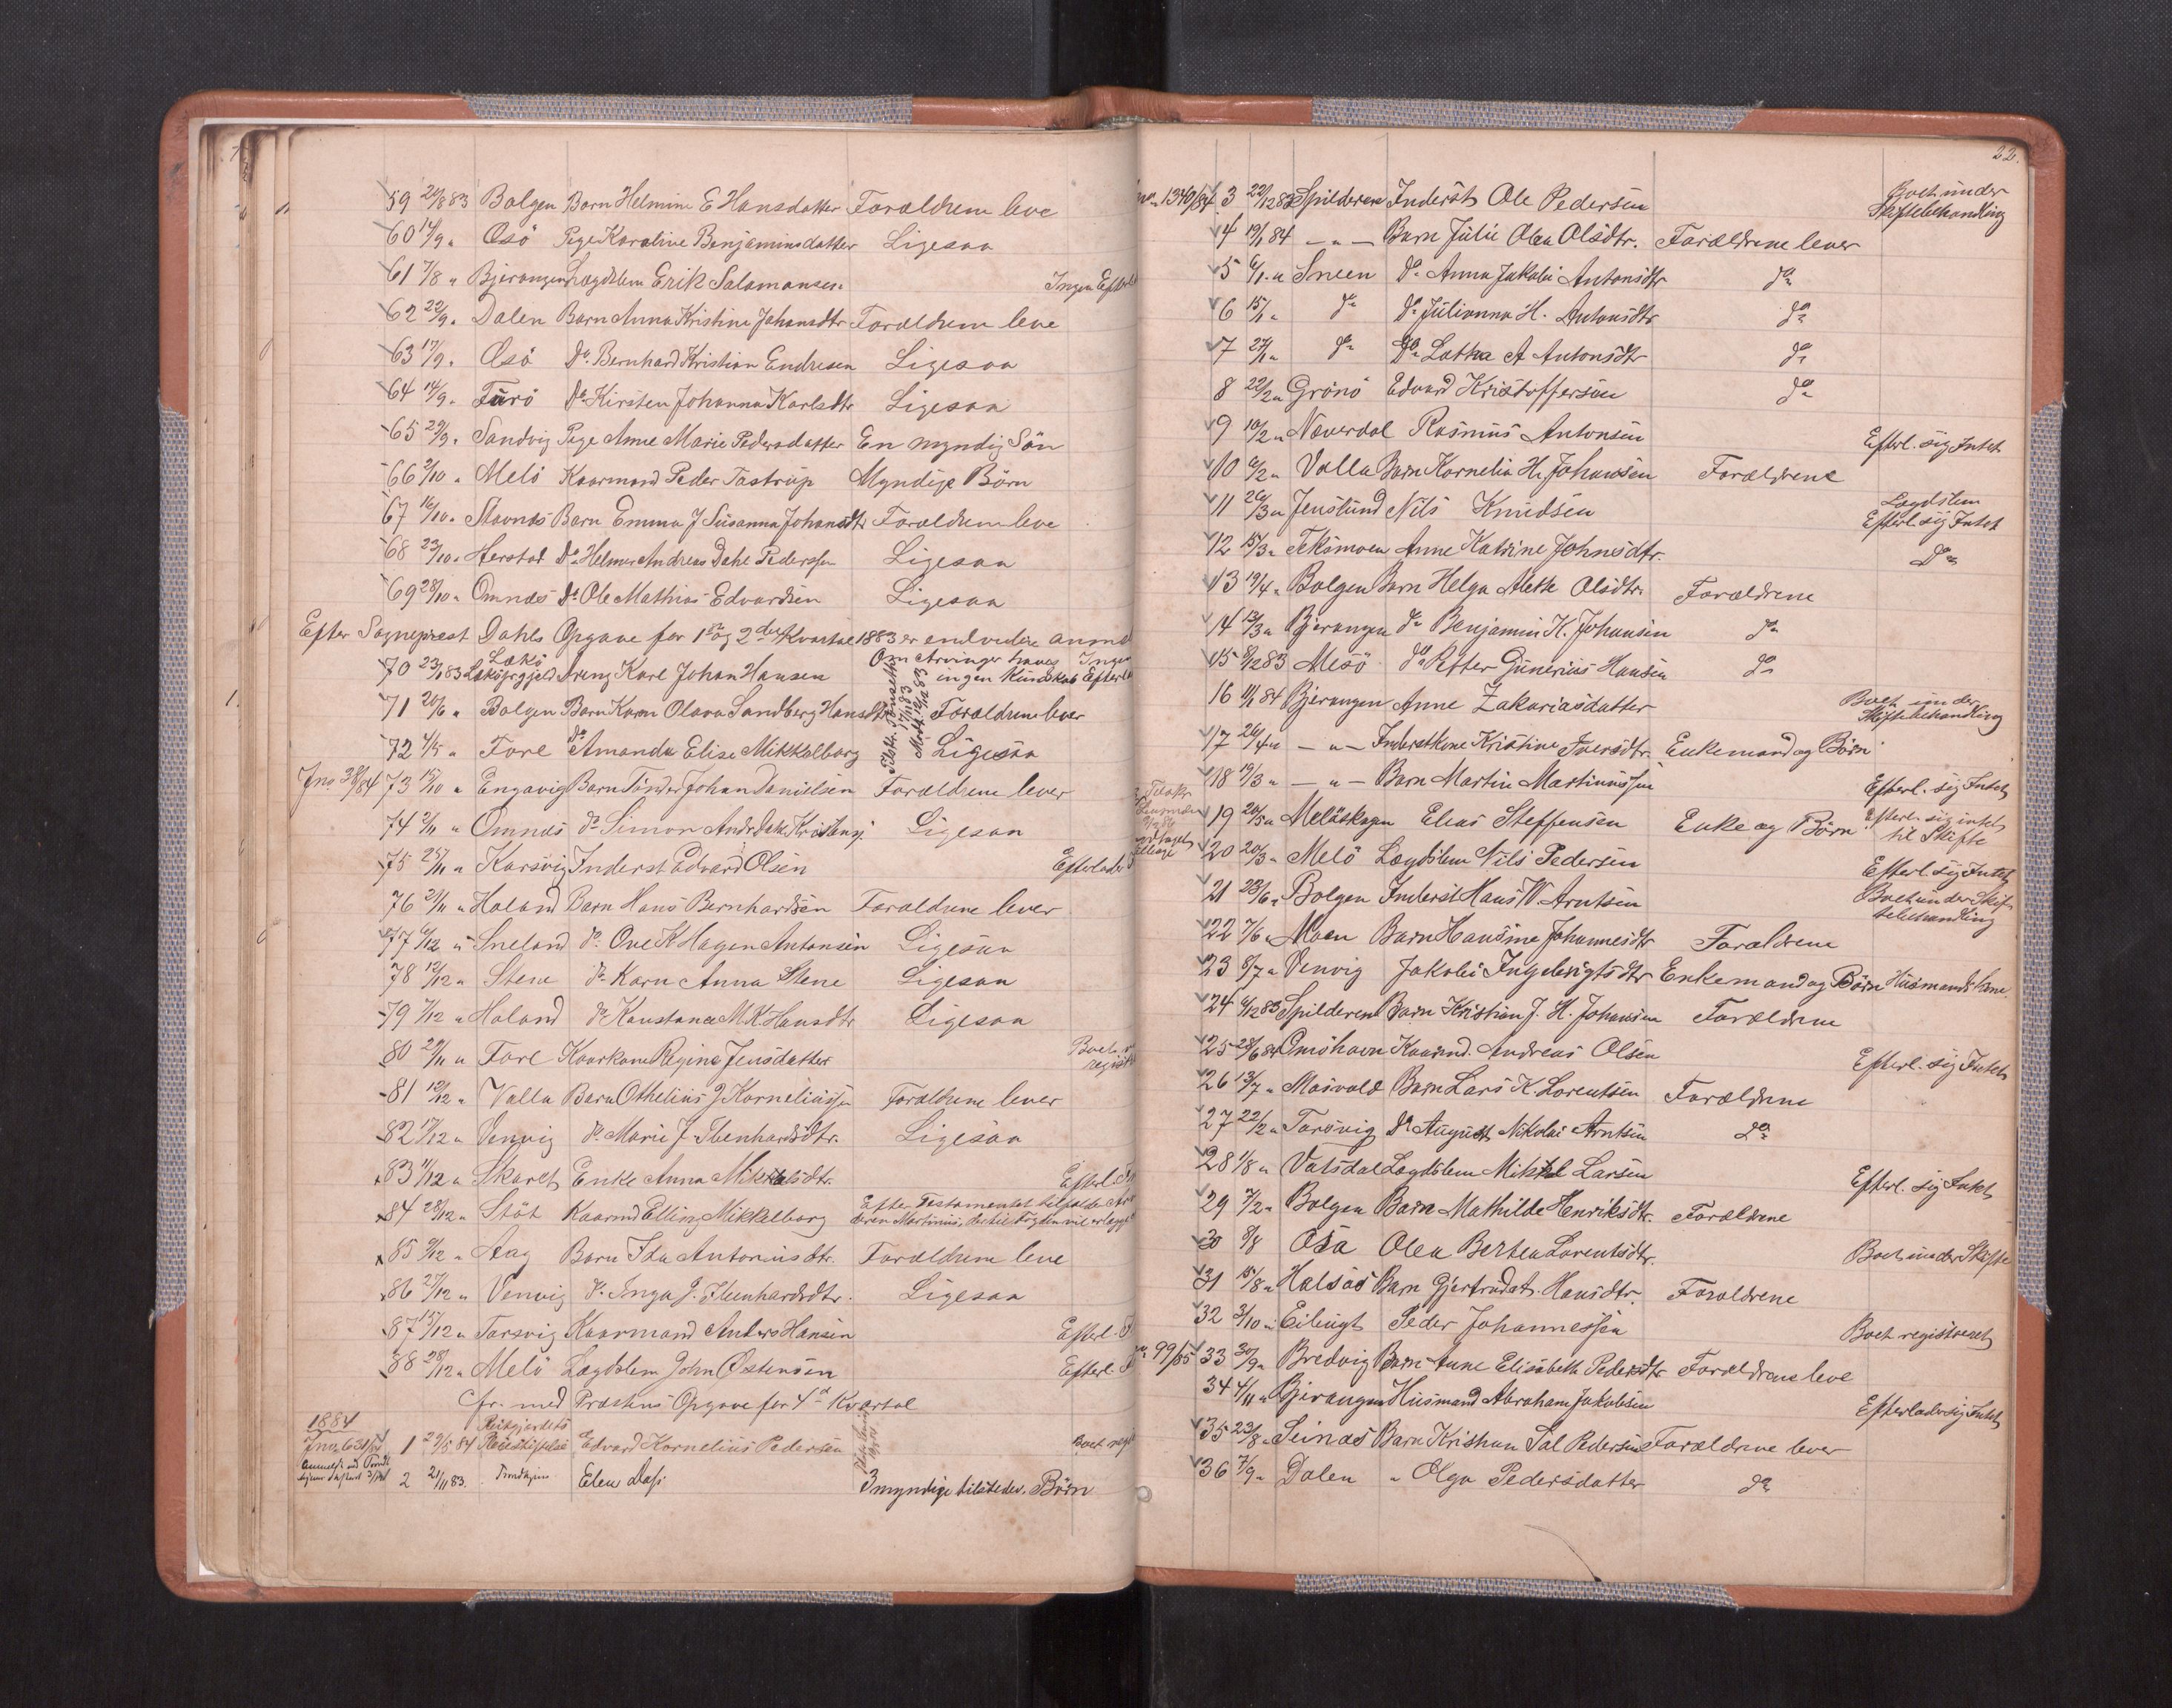 59 20/8 83 Bolgen Barn Helmine E Hansdatter Forældrene leve
60 14/9 „ Osö Pige Karoline Benjaminsdatter Ligesaa
61 7/8 „ Bjerangen Lægdslem Erik Salomonsen Ingen
62 22/9 „ Dalen Barn Anna Kristine Johansdtr Forældrene leve
63 17/9 „ Osö Do Bernhard Kristian Endresen Ligesaa
64 14/9 „ Do Kirsten Johanna Karlsdtr Ligesaa
65 29/9 „ Sandvig Pige Anne Marie Pedersdatter En myndig Sön
66 2/10 „ Melö Kaarmand Peder Tastrup Myndige Börn
67 16/10 „ Stavnæs Barn Emma J Susanna Johansdtr Forældrene leve
68 23/10 „ Herstad Do Helmer Andreas Dahl Pederssen Ligesaa
69 28/10 „ Omnæs Do Ole Mathias Edvardsen Ligesaa
Efter Sogneprest Dahls Opgave for 1ste og 2det Kvartal 1883 er endvidere anm
70 23/1 83 Dreng Karl Johan Hansen Om Arvinger haves ingen Kundskab
71 20/6 „ Bolgen Barn Karen Olava Sandberg Hansdtr Forældrene lever
72 4/5 „ Fore Do Amanda Elise Mikkelborg Ligesaa
Jno 38/84 73 15/10 „ Engavig Barn Tönder Johan Danielsen Forældrene lever
74 2/11 „ Omnæs Do Simon Andr Dahl Ligesaa
75 25/11 „ Karsvig Inderst Edvard Olsen Efterlader
76 21/11 „ Haland Barn Hans Bernhardsen Forældrene lever
77 6/12 „ Sneland Do Ove K Hagen Antonsen Ligesaa
78 12/12 „ Stene Do Karn Anna Stene Ligesaa
79 7/12 „ Haland Do Konstance M. K. Hansdtr Ligesaa
80 29/11 „ Fore Kaarkone Regine Jensdatter Boet
81 12/12 „ Valla Barn Othelius J Korneliussen Forældrene lever
82 17/12 „ Venvig Do Marie J. Ibenhardsdtr. Ligesaa
83 11/12 „ Skaret Enke Anna Mikkelsdtr. Efterl.
84 28/12 „ Stöt Kaarmd Elling Mikkelborg Efter Testamentet tilfalder
85 9/12 „ Aag Barn Ida Antoniusdtr. Forældrene leve
86 27/12 „ Venvig Do Inga J. Ibenhardsdtr. Ligesaa
87 15/12 „ Torsvig Kaarmand Anders Hansen Efterl.
88 28/12 „ Melö Lægdslem John Östensen Efterl.
Cfr. med Præstens Opgave for 4de Kvartal
1884
1 29/5 84 Edvard Kornelius Pedersen Boet
2 21/11 83. Trondhjem Elen Dass 3 myndige tilstedev. Börn
22.
1340/84 3 22/12 83 Spilderen Inderst Ole Pedersen Boet under Skiftebehandling
4 19/1 84 — „ — Barn Julie Olea Olsdtr. Forældrene lever
5 6/1 „ Sneen Do Anna Jakobi Antonsdtr Do
6 15/1 „ Do Do Julianna H. Antonsdtr Do
7 27/1 „ Do Do Lotha A Antonsdtr Do
8 22/2 „ Grönö Edvard Kristoffersen Do
9 10/2 „ Næverdal Rasmus Antonsen Efterl. sig Intet
10 6/2 „ Valla Barn Kornelia H. Johansen Forældrene
11 26/3 „ Jenslund Nils Knudsen Lægdslem Efterl. sig Intet
12 15/3 „ Teksmoen Anne Katrine Johnsdtr. Do
13 19/4 „ Bolgen Barn Helga Alette Olsdtr. Forældrene
14 13/3 „ Bjerangen Do Benjamin K. Johansen Do
15 8/12 83 Mesö Do Petter Gunerius Hansen Do
16 11/1 84 Bjerangen Anne Zakariasdatter Boet under Skiftebehandling
17 26/4 „ — „ — Inderstkone Kristine Iversdtr. Enkemand og Börn
18 19/3 „ — „ — Barn Martin Martinussen Efterl. sig Intet
19 20/5 „ Melöskagen Elias Steffensen Enke og Börn Efterl. sig intet til Skifte
20 20/3 „ Melö Lægdslem Nils Pedersen Efterl. sig Intet
21 23/6 „ Bolgen Inderst Hans W. Arntsen Boet under Skiftebehandling
22 7/6 „ Moen Barn Hansine Johannesdtr Forældrene
23 8/7 „ Venvig Jakobi Ingebrigtsdtr Enkemand og Börn Husmandskone
24 6/12 83 Spilderen Barn Kristian J. H. Johansen Forældrene
25 28/6 84 Omshavn Kaarmd. Andreas Olsen Efterl. sig Intet
26 13/7 „ Masvold Barn Lars K. Lorentsen Forældrene
27 22/2 „ Torsvig Do August Nikolai Arntsen Do
28 1/8 „ Vatsdal Lægdslem Mikkel Larsen Efterl. sig Intet
29 7/2 „ Bolgen Barn Mathilde Henriksdtr. Forældrene
30 9/8 Osa Olea Bertea Lorentsdtr. Boet under Skifte
31 15/8 „ Halsös Barn Gjertrud A. Hansdtr. Forældrene
32 3/10 „ Eilingt Peder Johannessen Boet registreret
99/85 33 30/9 „ Bredvig Barn Anne Elisabeth Pedersdtr Forældrene leve
34 4/11 „ Bjerangen Husmand Abraham Jakobsen Efterlader sig Intet
35 23/8 „ Seines Barn Kristian Sal Pedersen Forældrene lever
36 7/9 „ Dalen „ Olga Pedersdatter Do